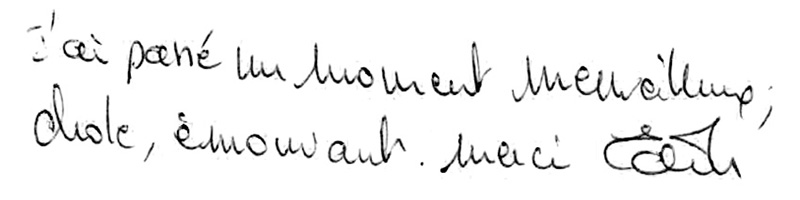 J'ai passé un moment merveilleux,
drole, émouvant. Merci